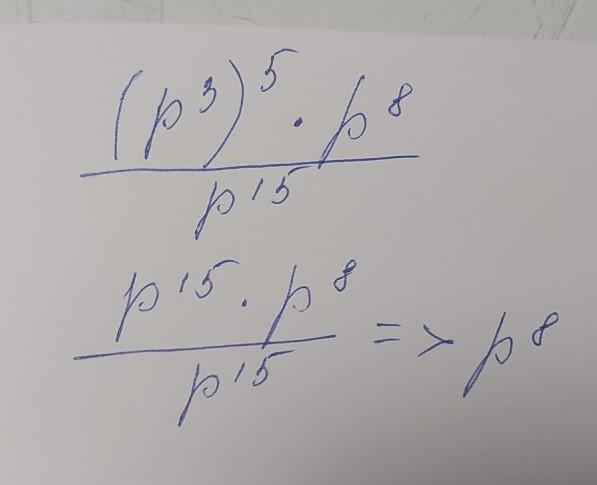 (p³)⁵ · p⁸
p¹⁵
p¹⁵ · p⁸
p¹⁵ => p⁸